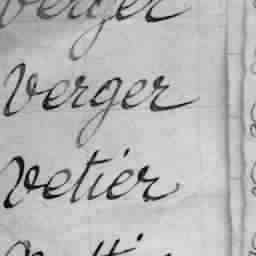 Verger
Verger
Vetiér